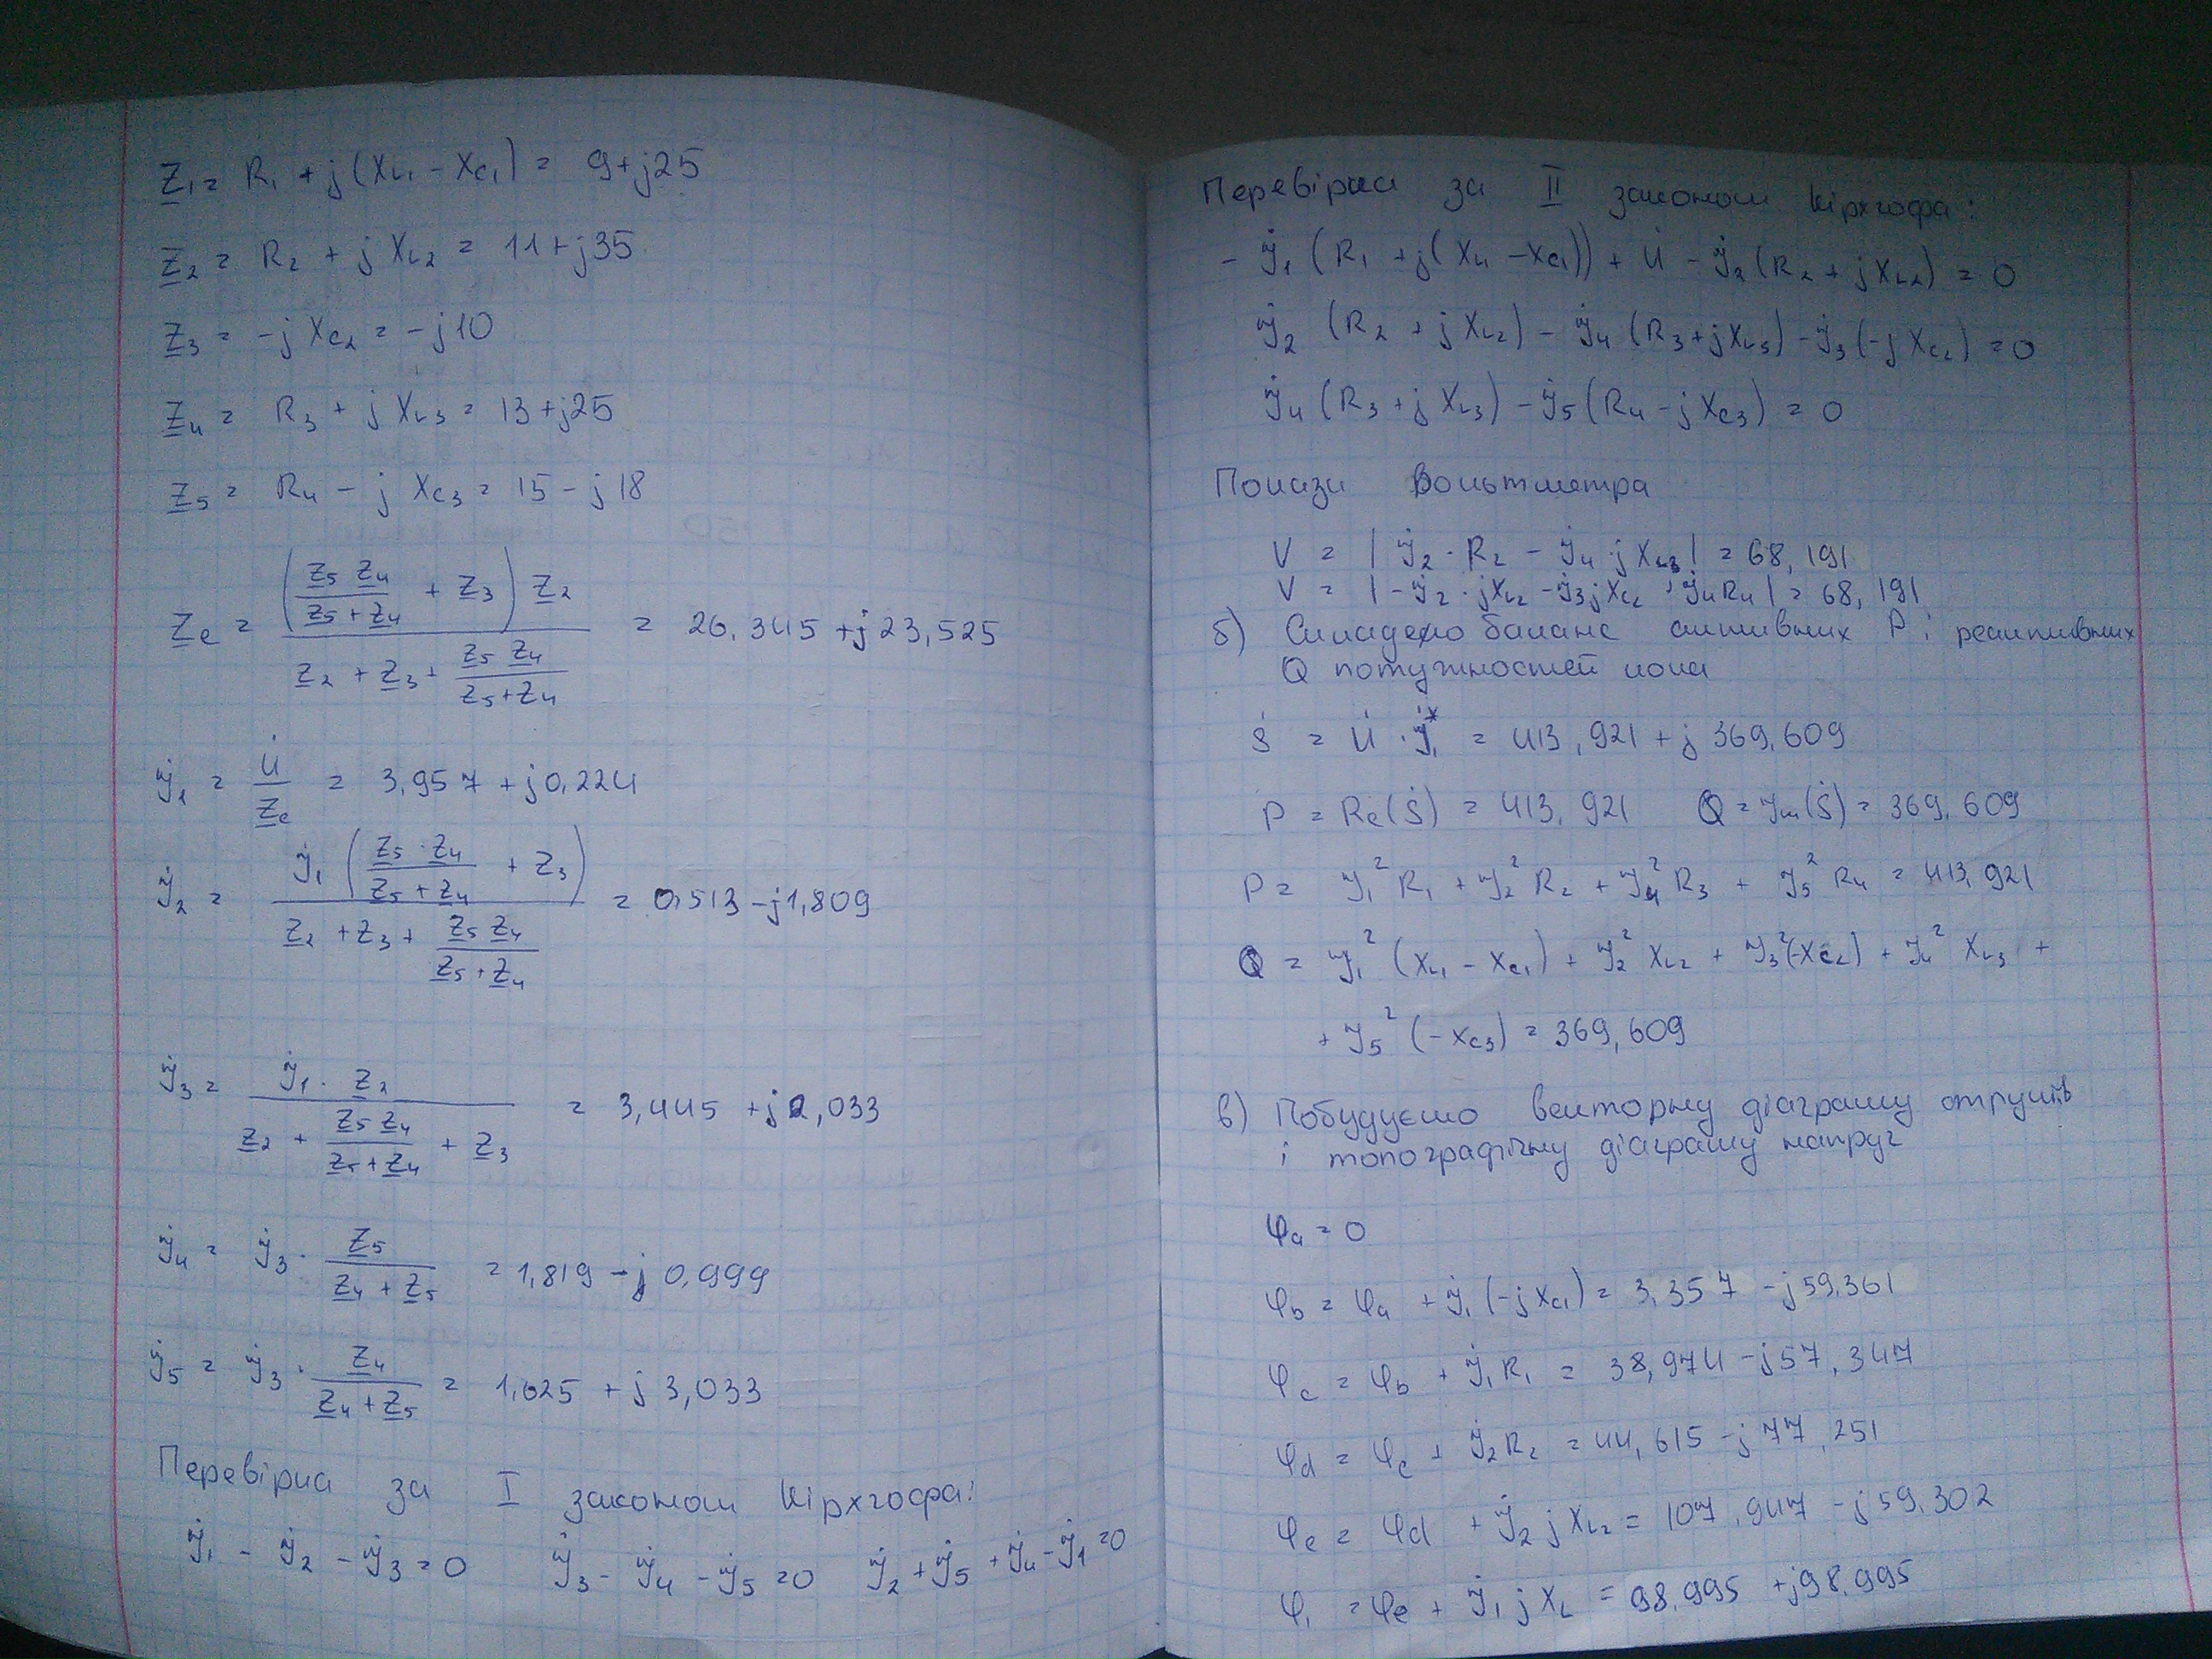 Z₁ = R₁ + j(X_L1 - X_C1) = 9+j25
Z₂ = R₂ + j X_L2 = 11+j35
Z₃ = -j X_C2 = -j10
Z₄ = R₃ + j X_L3 = 13+j25
Z₅ = R₄ - j X_C3 = 15-j18
Z_e = ((Z₅ Z₄)/(Z₅+Z₄) + Z₃) Z₂ / (Z₂ + Z₃ + (Z₅ Z₄)/(Z₅+Z₄)) = 26,345 + j23,525
İ₁ = U̇/Z_e = 3,957 + j0,224
İ₂ = İ₁ ((Z₅ · Z₄)/(Z₅ + Z₄) + Z₃) / (Z₂ + Z₃ + (Z₅ Z₄)/(Z₅+Z₄)) = 0,513 - j1,809
İ₃ = İ₁ · Z₂ / (Z₂ + (Z₅ Z₄)/(Z₅+Z₄) + Z₃) = 3,445 + j2,033
İ₄ = İ₃ · Z₅/(Z₄ + Z₅) = 1,819 - j0,999
İ₅ = İ₃ · Z₄/(Z₄ + Z₅) = 1,625 + j3,033
Перевірка за I законом Кірхгофа:
İ₁ - İ₂ - İ₃ = 0 İ₃ - İ₄ - İ₅ = 0 İ₂ + İ₅ + İ₄ - İ₁ = 0
Перевірка за II законом Кірхгофа:
- İ₁ (R₁ + j(X_L1 - X_C1)) + U̇ - İ₂ (R₂ + jX_L2) = 0
İ₂ (R₂ + jX_L2) - İ₄ (R₃ + jX_L3) - İ₃ (-jX_C2) = 0
İ₄ (R₃ + jX_L3) - İ₅ (R₄ - jX_C3) = 0
Покази Вольтметра
V = | İ₂ · R₂ - İ₄ · jX_L3 | = 68,191
V = | - İ₂ · jX_L2 - İ₃ jX_C2 + İ₄ R₄ | = 68,191
б) Складемо баланс активних P і реактивних
Q потужностей кола
Ṡ = U̇ · İ₁* = 413,921 + j 369,609
P = Re(Ṡ) = 413,921 Q = Im(Ṡ) = 369,609
P = I₁² R₁ + I₂² R₂ + I₄² R₃ + I₅² R₄ = 413,921
Q = I₁² (X_L1 - X_C1) + I₂² X_L2 + I₃² (-X_C2) + I₄² X_L3 +
+ I₅² (-X_C3) = 369,609
в) Побудуємо векторну діаграму струмів
і топографічну діаграму напруг
φ_a = 0
φ_b = φ_a + İ₁ (-jX_C1) = 3,357 - j59,361
φ_c = φ_b + İ₁ R₁ = 38,974 - j57,347
φ_d = φ_c + İ₂ R₂ = 44,615 - j77,251
φ_e = φ_d + İ₂ jX_L2 = 107,947 - j59,302
φ₁ = φ_e + İ₁ jX_L = 98,995 + j98,995